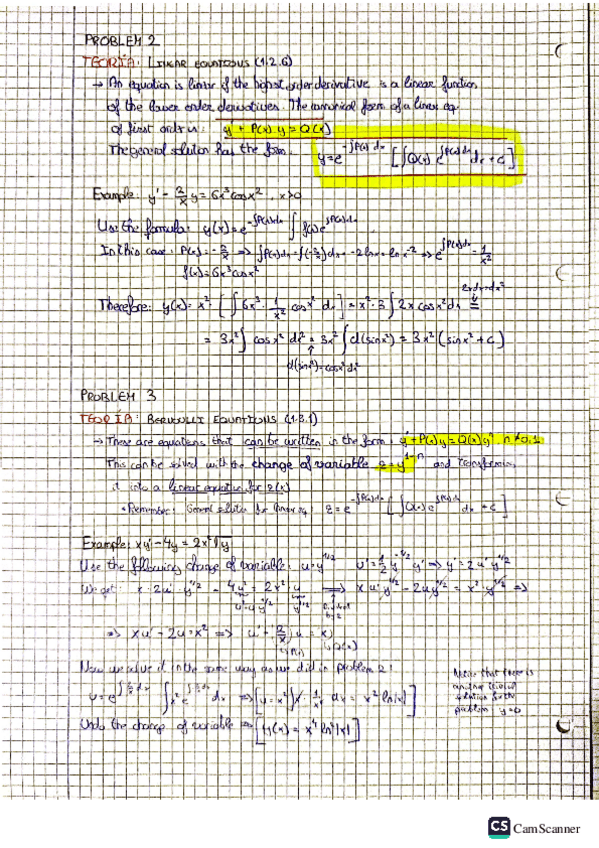 PROBLEM 2
TEORÍA: LINEAR EQUATIONS (1.2.6)
→ An equation is linear if the highest order derivative is a linear function
of the lower order derivatives. The canonical form of a linear eq.
of first order is: y' + P(x) y = Q(x)
The general solution has the form: y = e^{-∫P(x)dx} [∫Q(x) e^{∫P(x)dx} dx + C]
Example: y' - 2/x y = 6x³ cos x², x>0
Use the formula: y(x) = e^{-∫P(x)dx} ∫ f(x) e^{∫P(x)dx}
In this case: P(x) = -2/x ⇒ ∫P(x)dx = ∫(-2/x)dx = -2 ln x = ln x^{-2} ⇒ e^{∫P(x)dx} = 1/x²
f(x) = 6x³ cos x²
2xdx = dx²
Therefore: y(x) = x² [∫ 6x³ · 1/x² cos x² dx] = x² · 3 ∫ 2x cos x² dx =
= 3x² ∫ cos x² dx² = 3x² ∫ d(sin x²) = 3x² (sin x² + C)
d(sin x²) = cos x² dx²
PROBLEM 3
TEORÍA: BERNOULLI EQUATIONS (1.3.1)
→ These are equations that can be written in the form: y' + P(x) y = Q(x) y^n n ≠ 0,1
This can be solved with the change of variable z = y^{1-n} and transforming
it into a linear equation for z(x)
• Remember: General solution for linear eq: z = e^{-∫P(x)dx} [∫Q(x) e^{∫P(x)dx} dx + C]
Example: xy' - 4y = 2x² √y
Use the following change of variable: u = y^{1/2} u' = 1/2 y^{-1/2} y' ⇒ y' = 2u' y^{1/2}
We get: x · 2u' y^{1/2} - 4u² = 2x² u ⇒ x u' y^{1/2} - 2u y^{1/2} = x² y^{1/2} ⇒
⇒ xu' - 2u = x² ⇒ u' - 2/x u = x
Now we solve it in the same way as we did in problem 2:
u = e^{∫2/x dx} ∫ x e^{-∫2/x dx} dx ⇒ [u = x² ∫ x · 1/x² dx = x² ln|x|]
Notice that there is
another trivial
solution for the
problem y=0
Undo the change of variable ⇒ [y(x) = x⁴ ln²|x|]
CS CamScanner